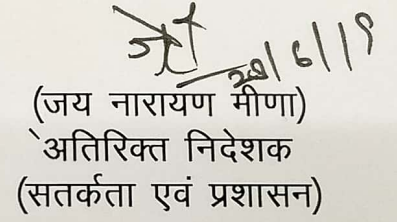 28/6/19
(जय नारायण मीणा)
अतिरिक्त निदेशक
(सतर्कता एवं प्रशासन)